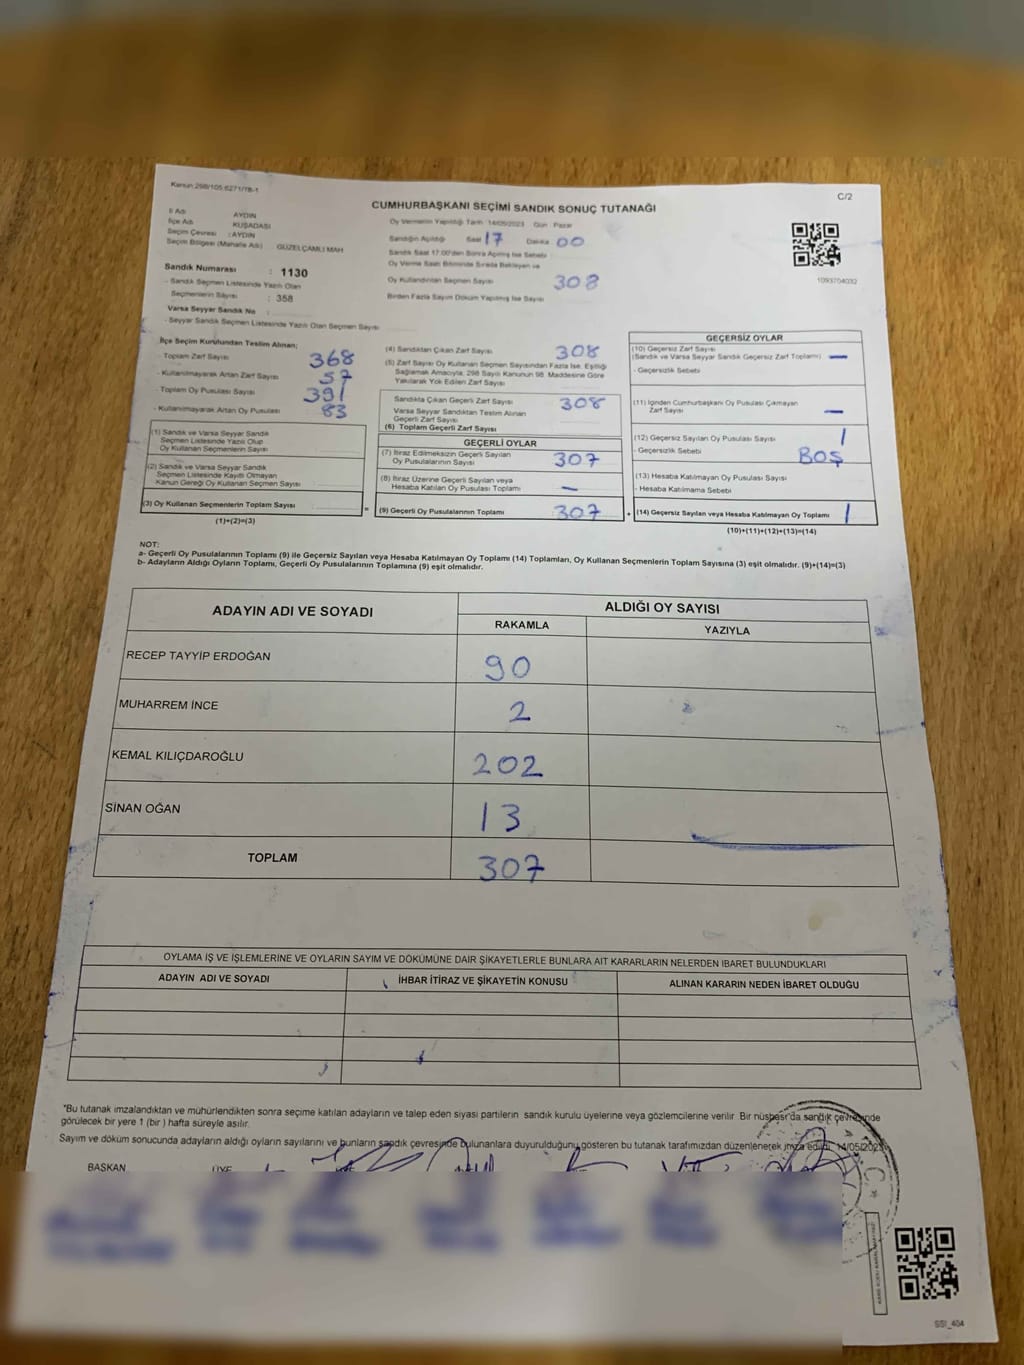 Kanun:298/105,6271/78-1
C/2
CUMHURBAŞKANI SEÇİMİ SANDIK SONUÇ TUTANAĞI
İl Adı AYDIN
İlçe Adı KUŞADASI
Seçim Çevresi : AYDIN
Seçim Bölgesi (Mahalle Adı) GÜZELÇAMLI MAH
Sandık Numarası : 1130
- Sandık Seçmen Listesinde Yazılı Olan
Seçmenlerin Sayısı : 358
Varsa Seyyar Sandık No :
- Seyyar Sandık Seçmen Listesinde Yazılı Olan Seçmen Sayısı
Oy Vermenin Yapıldığı Tarih 14/05/2023 Gün : Pazar
Sandığın Açıldığı Saat 17 Dakika 00
Sandık Saat 17:00'den Sonra Açılmış İse Sebebi
Oy Verme Saati Bitiminde Sırada Bekleyen ve
Oy Kullandırılan Seçmen Sayısı 308
Birden Fazla Sayım Döküm Yapılmış İse Sayısı
1093704032
İlçe Seçim Kurulundan Teslim Alınan;
- Toplam Zarf Sayısı 368
- Kullanılmayarak Artan Zarf Sayısı 57
- Toplam Oy Pusulası Sayısı 391
- Kullanılmayarak Artan Oy Pusulası 83
(1) Sandık ve Varsa Seyyar Sandık
Seçmen Listesinde Yazılı Olup
Oy Kullanan Seçmenlerin Sayısı
(2) Sandık ve Varsa Seyyar Sandık
Seçmen Listesinde Kayıtlı Olmayan
Kanun Gereği Oy Kullanan Seçmen Sayısı
(3) Oy Kullanan Seçmenlerin Toplam Sayısı
(1)+(2)=(3)
=
(4) Sandıktan Çıkan Zarf Sayısı 308
(5) Zarf Sayısı Oy Kullanan Seçmen Sayısından Fazla İse, Eşitliği
Sağlamak Amacıyla, 298 Sayılı Kanunun 98. Maddesine Göre
Yakılarak Yok Edilen Zarf Sayısı
Sandıkta Çıkan Geçerli Zarf Sayısı 308
Varsa Seyyar Sandıktan Teslim Alınan
Geçerli Zarf Sayısı
(6) Toplam Geçerli Zarf Sayısı
GEÇERLİ OYLAR
(7) İtiraz Edilmeksizin Geçerli Sayılan
Oy Pusulalarının Sayısı 307
(8) İtiraz Üzerine Geçerli Sayılan veya
Hesaba Katılan Oy Pusulası Toplamı —
(9) Geçerli Oy Pusulalarının Toplamı 307
+
GEÇERSİZ OYLAR
(10) Geçersiz Zarf Sayısı
(Sandık ve Varsa Seyyar Sandık Geçersiz Zarf Toplamı) —
- Geçersizlik Sebebi
(11) İçinden Cumhurbaşkanı Oy Pusulası Çıkmayan
Zarf Sayısı —
(12) Geçersiz Sayılan Oy Pusulası Sayısı 1
- Geçersizlik Sebebi BOŞ
(13) Hesaba Katılmayan Oy Pusulası Sayısı
- Hesaba Katılmama Sebebi
(14) Geçersiz Sayılan veya Hesaba Katılmayan Oy Toplamı 1
(10)+(11)+(12)+(13)=(14)
NOT:
a- Geçerli Oy Pusulalarının Toplamı (9) ile Geçersiz Sayılan veya Hesaba Katılmayan Oy Toplamı (14) Toplamları, Oy Kullanan Seçmenlerin Toplam Sayısına (3) eşit olmalıdır. (9)+(14)=(3)
b- Adayların Aldığı Oyların Toplamı, Geçerli Oy Pusulalarının Toplamına (9) eşit olmalıdır.
ADAYIN ADI VE SOYADI ALDIĞI OY SAYISI
RAKAMLA YAZIYLA
RECEP TAYYİP ERDOĞAN 90
MUHARREM İNCE 2
KEMAL KILIÇDAROĞLU 202
SİNAN OĞAN 13
TOPLAM 307
OYLAMA İŞ VE İŞLEMLERİNE VE OYLARIN SAYIM VE DÖKÜMÜNE DAİR ŞİKAYETLERLE BUNLARA AİT KARARLARIN NELERDEN İBARET BULUNDUKLARI
ADAYIN ADI VE SOYADI İHBAR İTİRAZ VE ŞİKAYETİN KONUSU ALINAN KARARIN NEDEN İBARET OLDUĞU
*Bu tutanak imzalandıktan ve mühürlendikten sonra seçime katılan adayların ve talep eden siyasi partilerin sandık kurulu üyelerine veya gözlemcilerine verilir. Bir nüshası da sandık çevresinde
görülecek bir yere 1 (bir ) hafta süreyle asılır.
Sayım ve döküm sonucunda adayların aldığı oyların sayılarını ve bunların sandık çevresinde bulunanlara duyurulduğunu gösteren bu tutanak tarafımızdan düzenlenerek imza edildi. 14/05/2023
BAŞKAN ÜYE
SSI_404